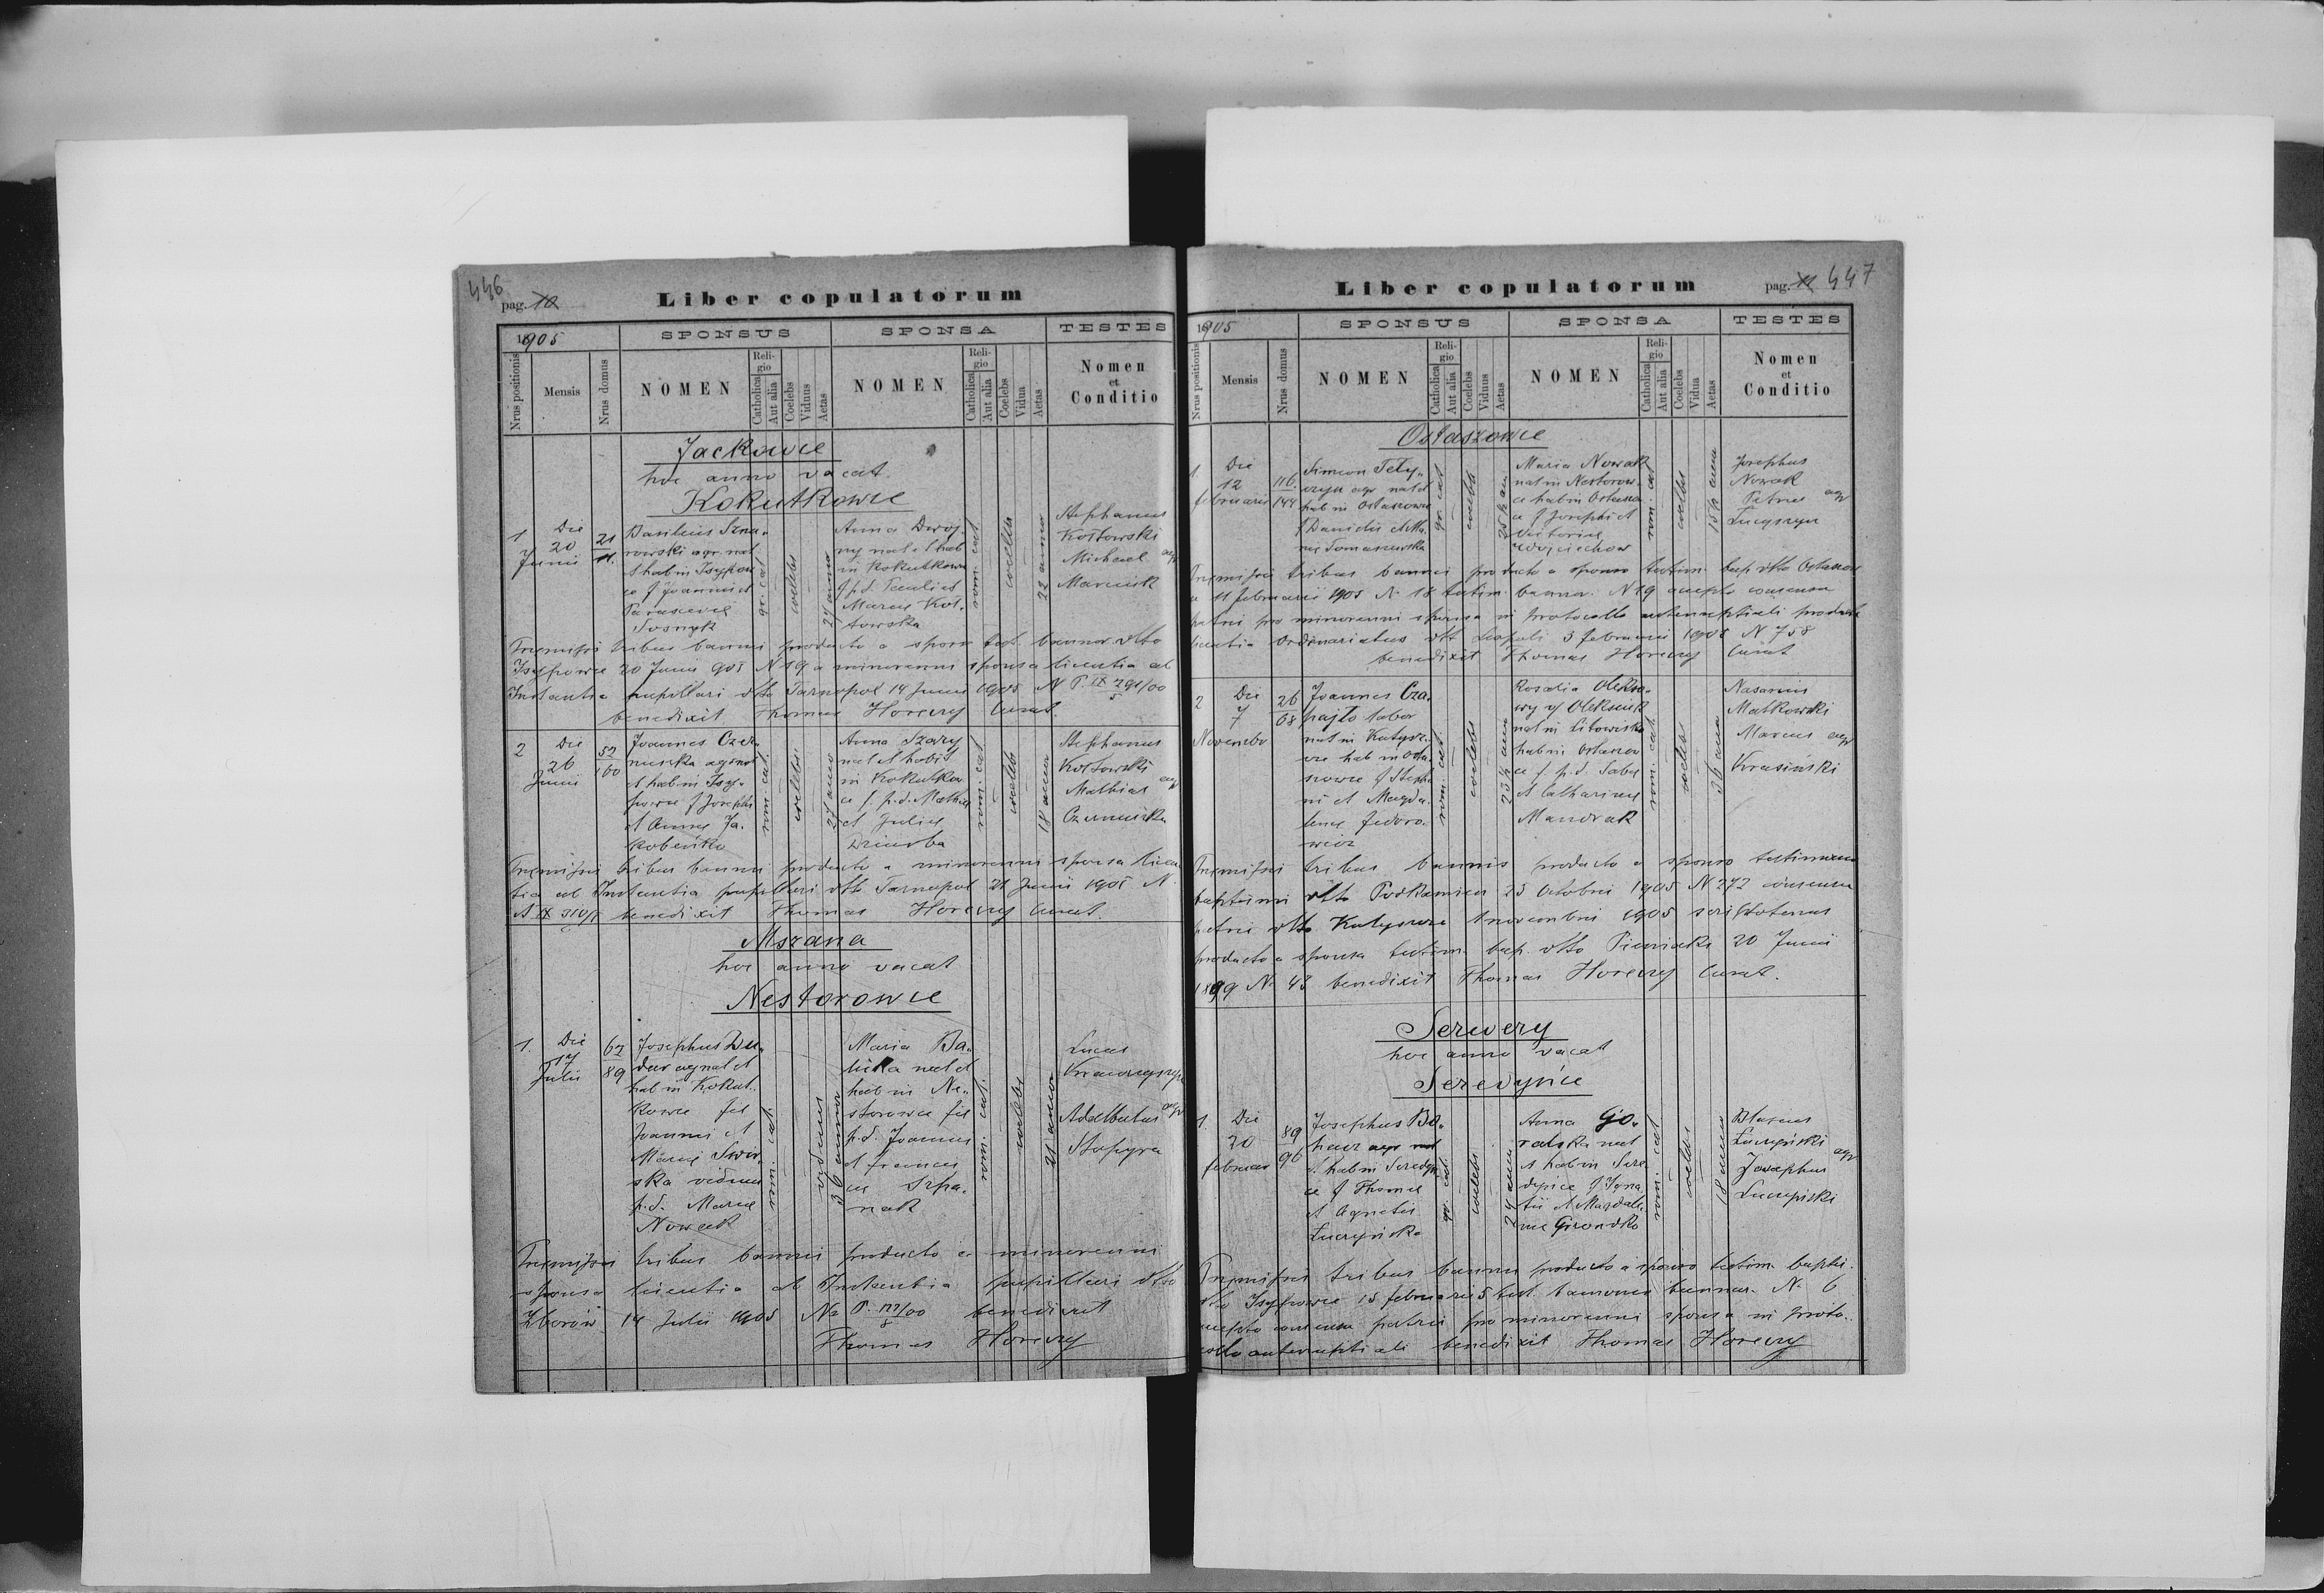 446
pag.
Liber copulatorum
1905
SPONSUS
SPONSA
TESTES
Nrus positionis
Mensis
Nrus domus
NOMEN
Religio
Catholica
Aut alia
Coelebs
Viduus
Aetas
NOMEN
Religio
Catholica
Aut alia
Coelebs
Vidua
Aetas
Nomen
et
Conditio
Jackowce
hoc anno vacat.
Kokutkowce
1
Die
20
Junii
21
Basilius Szna-
rowski agr. nat
et hab in Isypow
ce f Joannis et
Parascevae
Sosnyk
gr. cat
coelebs
27 annor
Anna Dwoj-
ny nat et hab
in Kokutkowce
f p.d. Pauli et
Mariae Koł-
towska
rom. cat
coelebs
22 annor
Stephanus
Kołtowski
Michael agr
Marciuk
Praemissis tribus bannis producto a sponso test. bannor. dtto
Isypowce 20 Junii 905 N 19 a minorenni sponsa licentia ab
Instantia pupillari dtto Tarnopol 14 Junii 1905 N P. IX 291/00
5
benedixit Thomas Horeczy Curat.
2
Die
26
Junii
52
100
Joannes Czer-
nuszka agr nat
et hab in Isy-
powce f Josephi
et Annae Ja-
kobenko
rom. cat.
coelebs
27 annor
Anna Szary
nat et habit
in Kokutkow
ce f. p.d. Mathiae
et Juliae
Dziurba
rom. cat
coelebs
18 annor
Stephanus
Kołtowski
Mathias agr
Czernuszka
Praemissis tribus bannis producto a minorenni sponsa licen-
tia ab Instantia pupillari dtto Tarnopol 21 Junii 1905 N
benedixit Thomas Horeczy Curat.
Mszana
hoc anno vacat
Nestorowce
1.
Die
17
Julii
62
89
Josephus Du-
dar agr nat et
hab in Kokut-
kowce fil
Joannis et
Mariae Swir-
ska viduus
p.d. Mariae
Nowak
rom. cat
viduus
36 annor
Maria Ba-
licka nat et
hab in Ne-
storowce fil
p.d. Joannis
et Francis
cae Szpa-
nak
rom. cat.
coelebs
21 annor
Lucas
Krawczyszyn
Adalbertus agr
Stapyra
Praemissis tribus bannis producto a minorenni
sponsa licentia ab Instantia pupillari dtto
Zborów 14 Julii 1905 No P. 122/00 benedixit
8
Thomas Horeczy
Liber copulatorum
pag. 447
1905
SPONSUS
SPONSA
TESTES
Nrus positionis
Mensis
Nrus domus
NOMEN
Religio
Catholica
Aut alia
Coelebs
Viduus
Aetas
NOMEN
Religio
Catholica
Aut alia
Coelebs
Vidua
Aetas
Nomen
et
Conditio
Ostaszowce
1.
Die
12
februarii
116
144
Simeon Tety-
czyn agr nat et
hab in Ostaszowce
f Danielis et Ma
riae Tomaszewska
gr. cat
coelebs
25 ½ an
Maria Nowak
nat in Nestorow-
ce hab in Ostaszow
ce f Josephi et
Victoriae
Wojciechow
rom. cat
coelebs
15 ½ ann
Josephus
Nowak
Petrus agr
Lucyszyn
Praemissis tribus bannis producto a sponso testim. bap dtto Ostaszow
ce 11 februarii 1905 N. 18 testim. bannor. N 19 accepto consensu
patris pro minorenni sponsa in protocollo antenuptiali producta
licentia Ordinariatus dtt Leopoli 3 februarii 1905 N 758
benedixit Thomas Horeczy Curat
2
Die
7
Novembr
26
68
Joannes Cza-
pajło labor
nat in Kutysz-
cze hab in Osta-
szowce f Stepha
ni et Magda-
lenae Fedoro-
wicz
rom. cat
coelebs
23 ½ ann
Rosalia Olekso-
wy v Oleksiuk
nat in Litowisko
hab in Ostaszow
ce f. p.d. Sabae
et Catharinae
Mandrak
rom. cat.
coelebs
36 ann
Nasarius
Małkowski
Marcus agr
Krasiński
Praemissis tribus bannis producto a sponso testimonio
baptismi dtto Podkamien 25 Octobris 1905 N 272 consensu
patris dtto Kutyszcze 1 novembris 1905 scriptotenus
producto a sponsa testim. bap. dtto Pieniaki 20 Junii
1899 N. 43 benedixit Thomas Horeczy Curat.
Serwery
hoc anno vacat
Seredyńce
1.
Die
20
februar
89
96
Josephus Bo-
hacz agr nat
et hab in Seredyn
ce f Thomae
et Agnetis
Łuczyńska
gr. cat.
coelebs
24 annor
Anna Go-
ralska nat
et hab in Sere-
dyńce f Igna
tii et Magdale-
nae Gwondko
rom. cat
coelebs
18 annor
Blasius
Łuczyński agr
Josephus
Łuczyński
Praemissis tribus bannis producto a sponso testim. baptis.
dtto Isypowce 15 februarii 5 test bannor. N. 6
accepto consensu patris pro minorenni sponsa in proto-
collo antenuptiali benedixit Thomas Horeczy